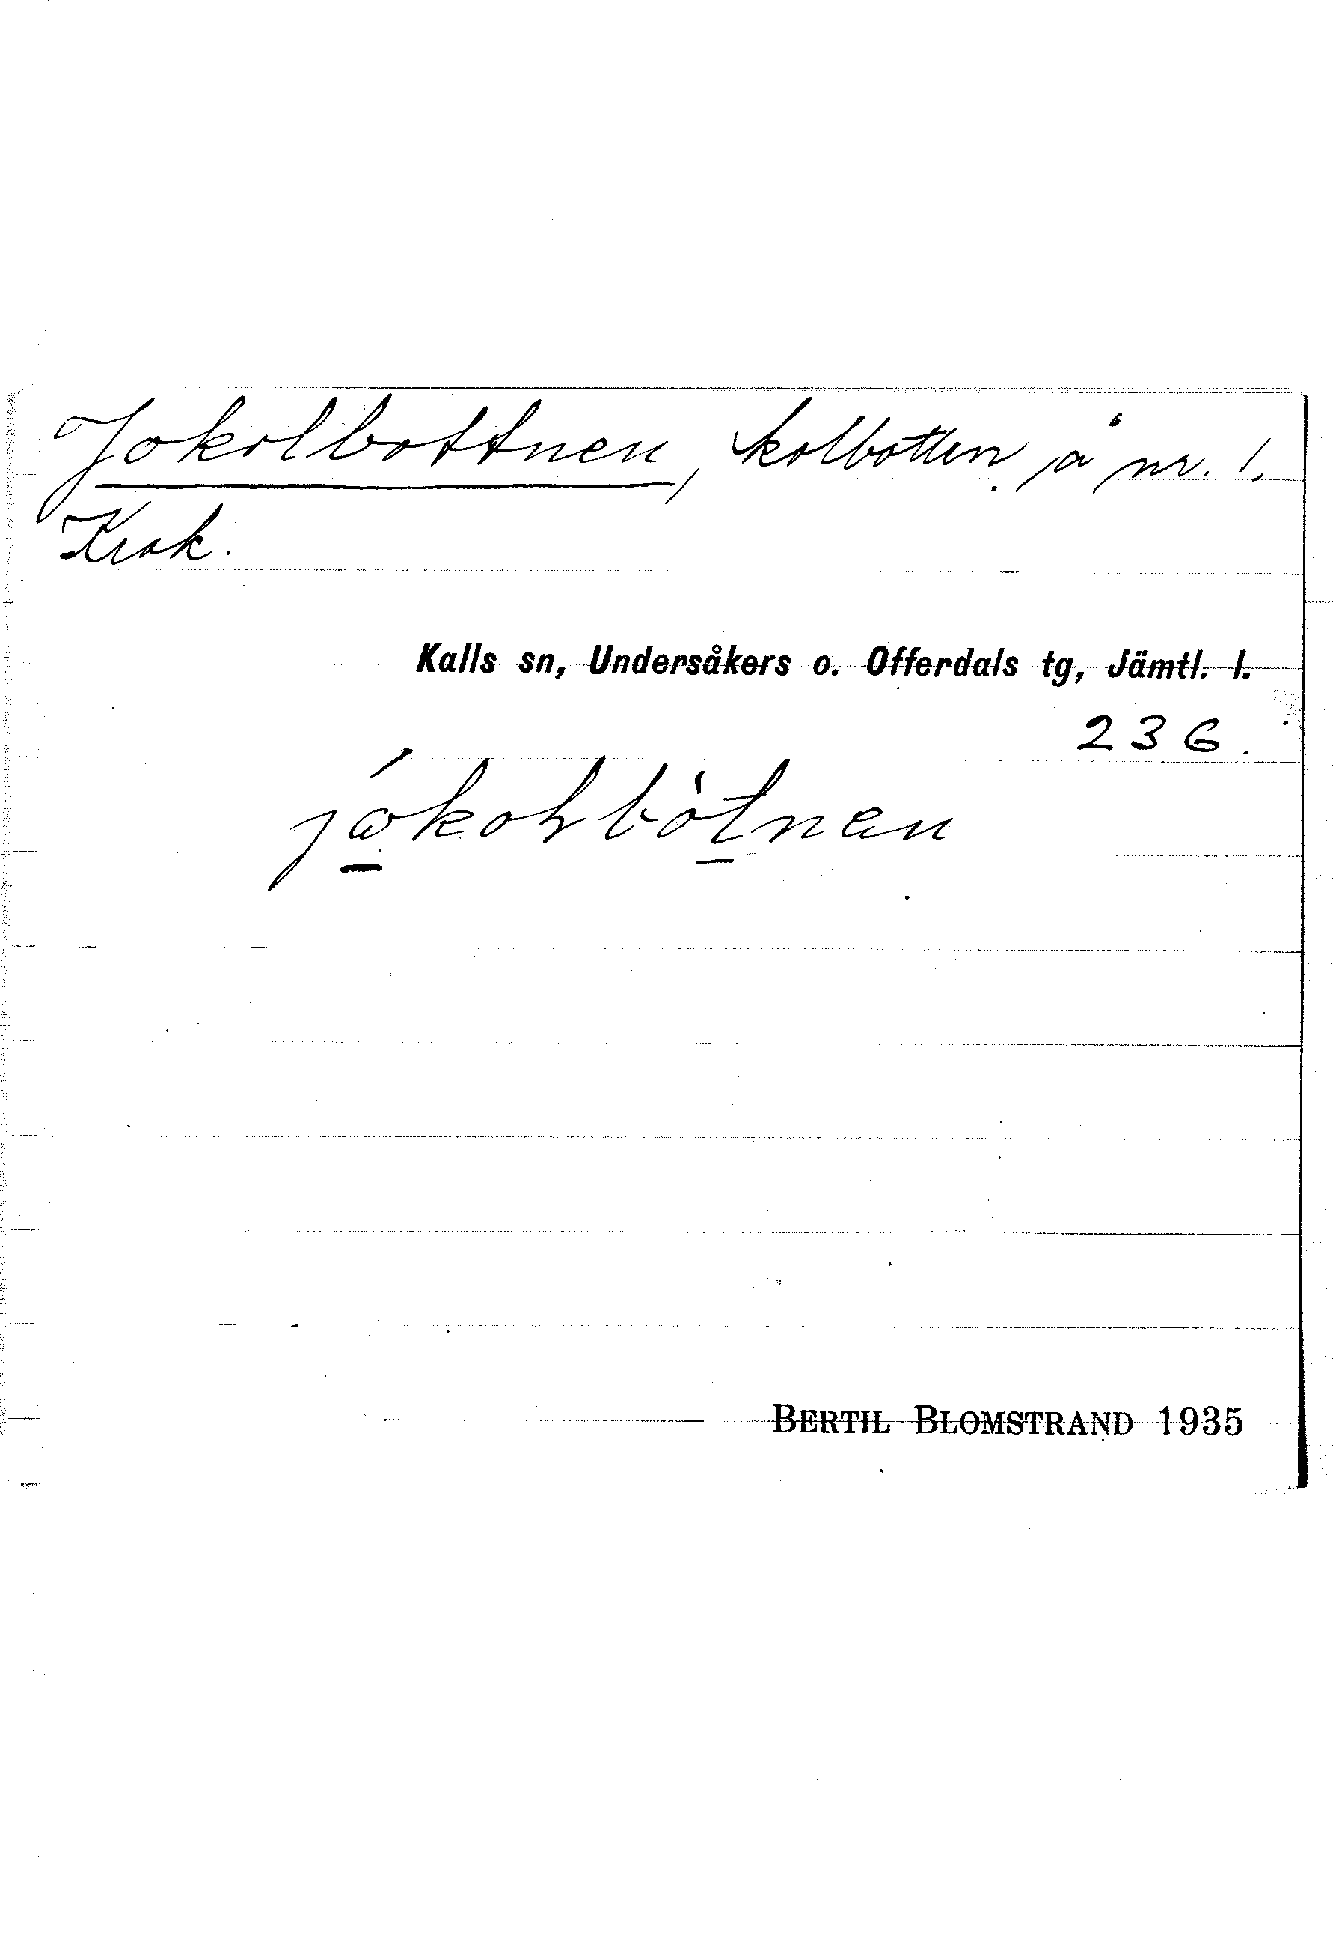 Jokolbottnen, kolbotten å nr. 1.
Krok.
Kalls sn, Undersåkers o. Offerdals tg, Jämtl. l.
236.
BERTIL BLOMSTRAND 1935